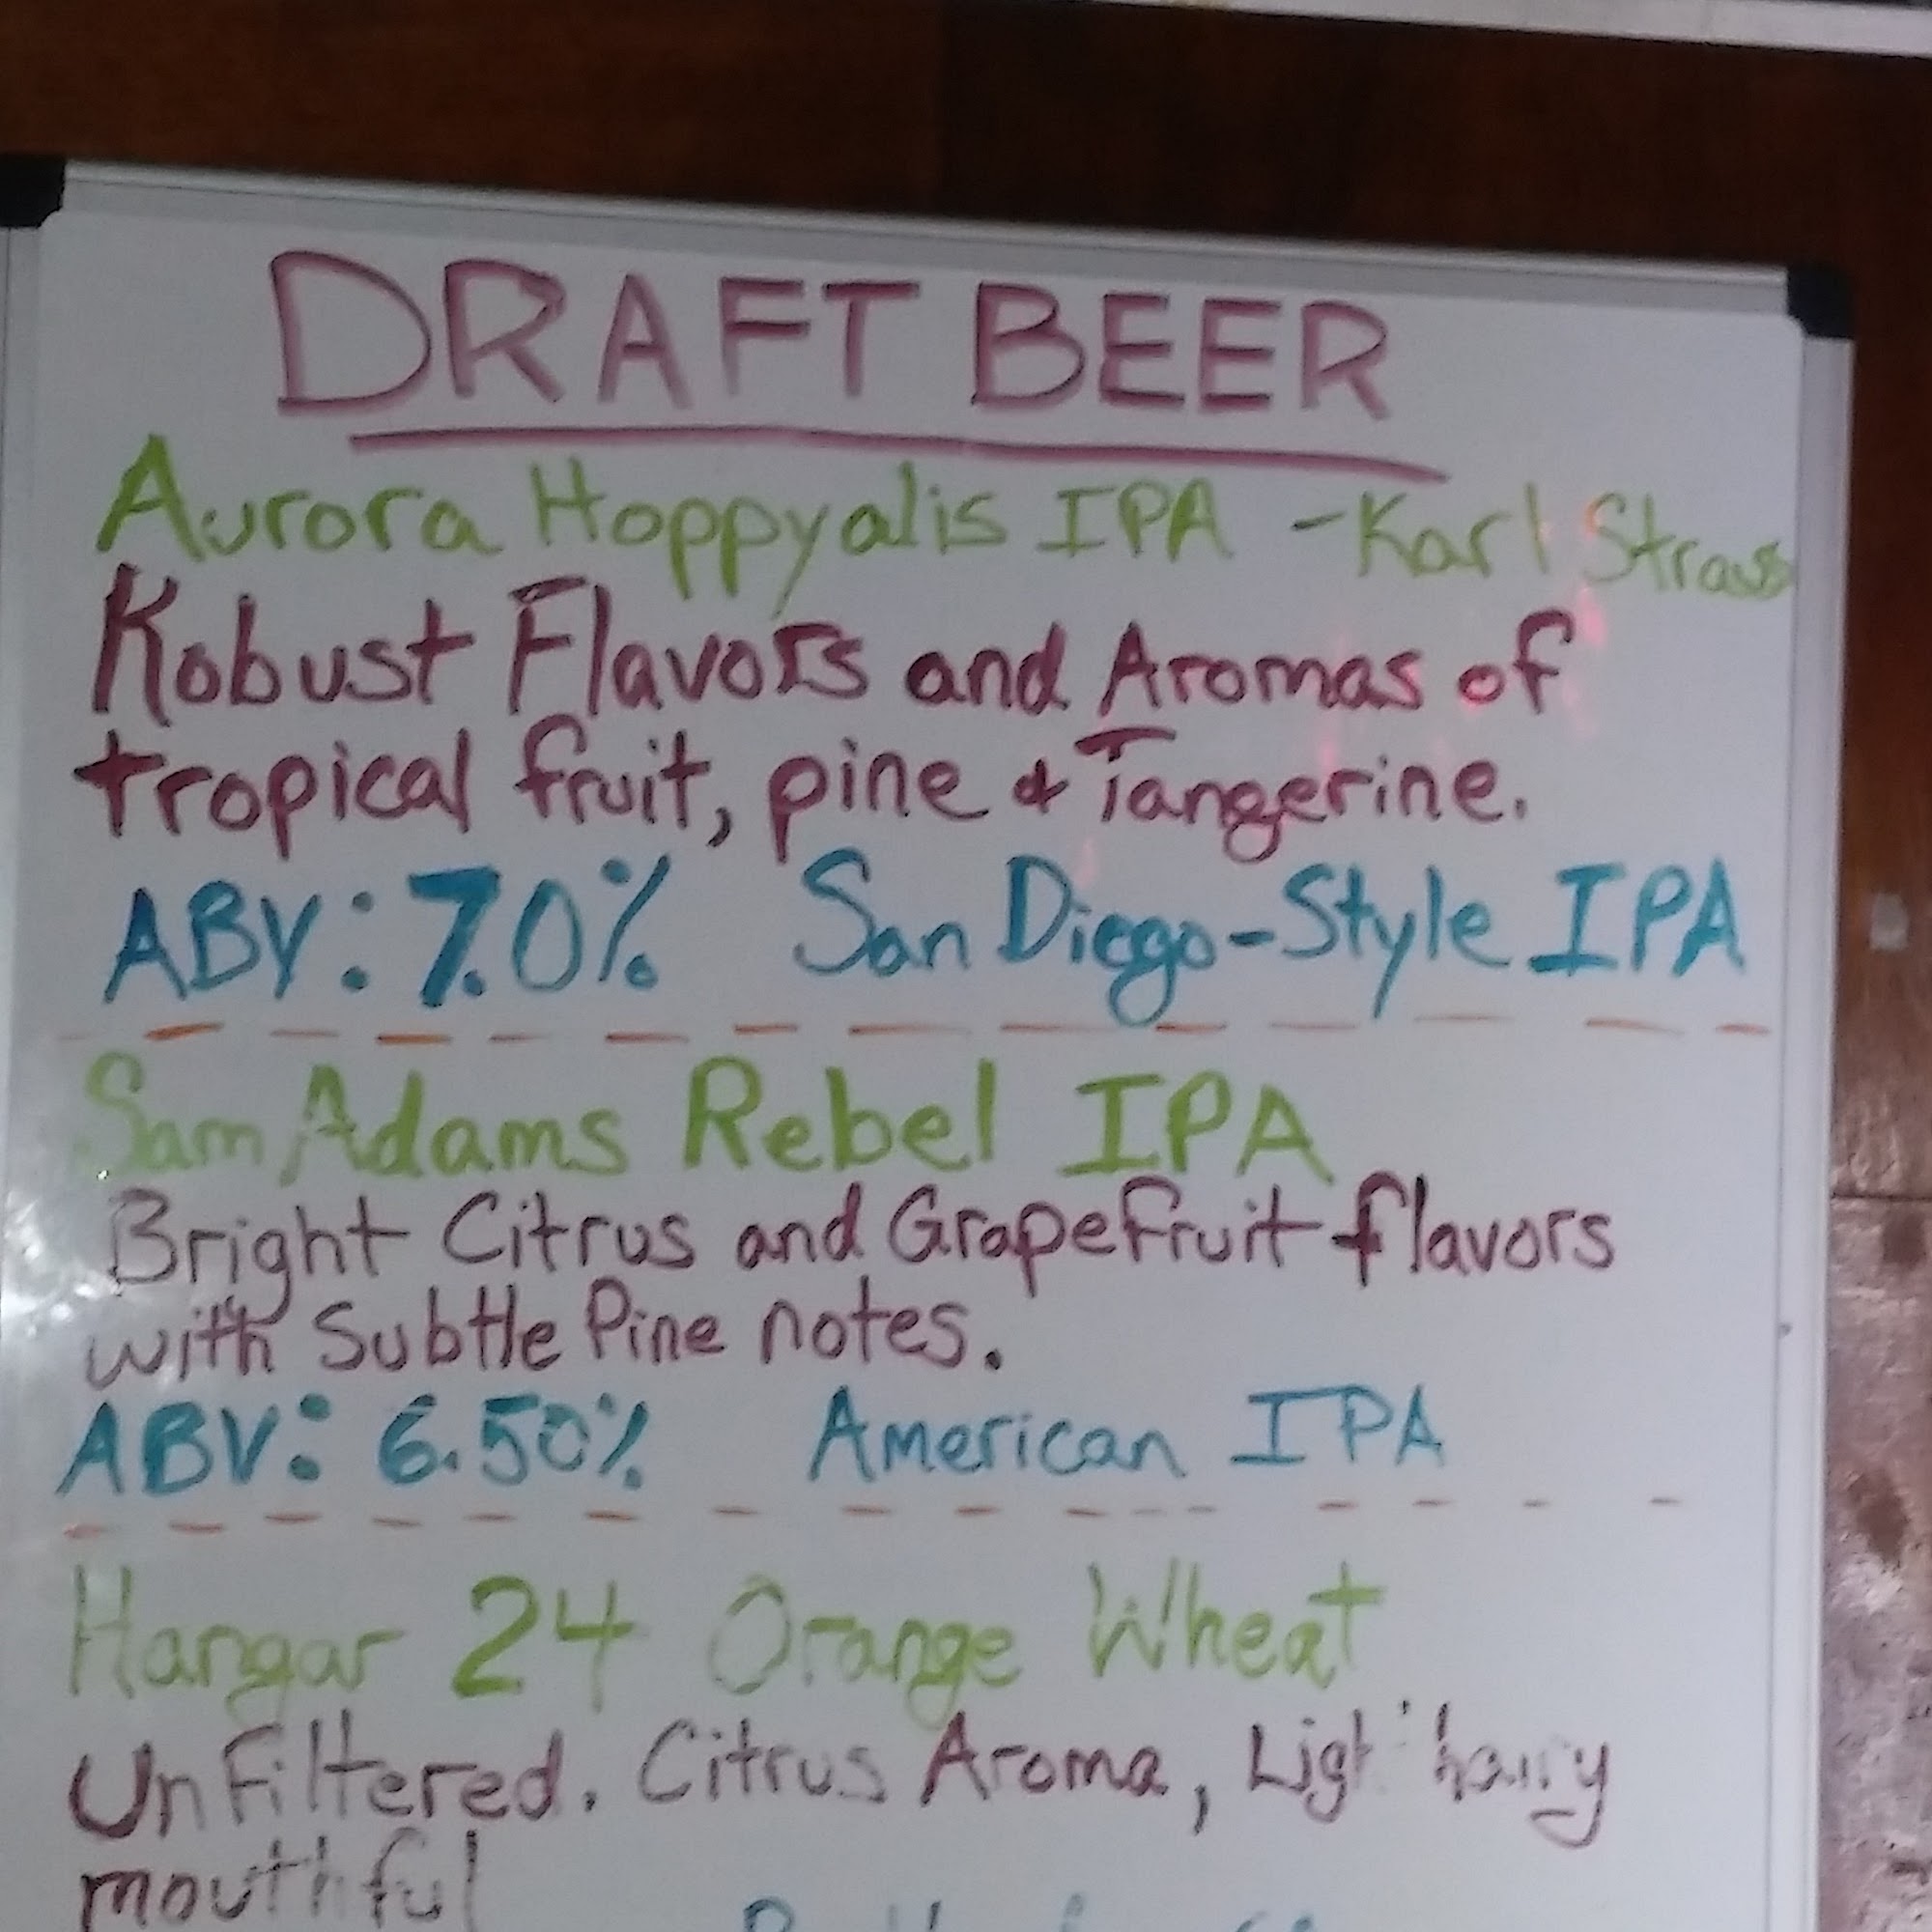 DRAFT BEER
Aurora Hoppyalis IPA - Karl Strauss
Robust Flavors and Aromas of
tropical fruit, pine & Tangerine.
ABV: 7.0% San Diego-Style IPA
Sam Adams Rebel IPA
Bright Citrus and Grapefruit flavors
with Subtle Pine notes.
ABV: 6.50% American IPA
Hangar 24 Orange Wheat
Unfiltered. Citrus Aroma,
mouthful